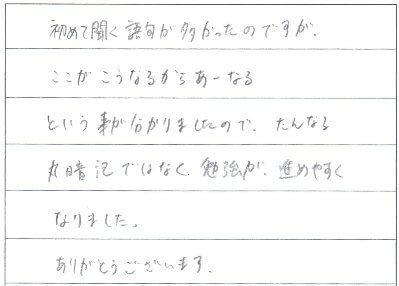 初めて聞く語句が多かったのですが、
ここがこうなるからあーなる
という事が分かりましたので、たんなる
丸暗記ではなく、勉強が、進めやすく
なりました。
ありがとうございます。